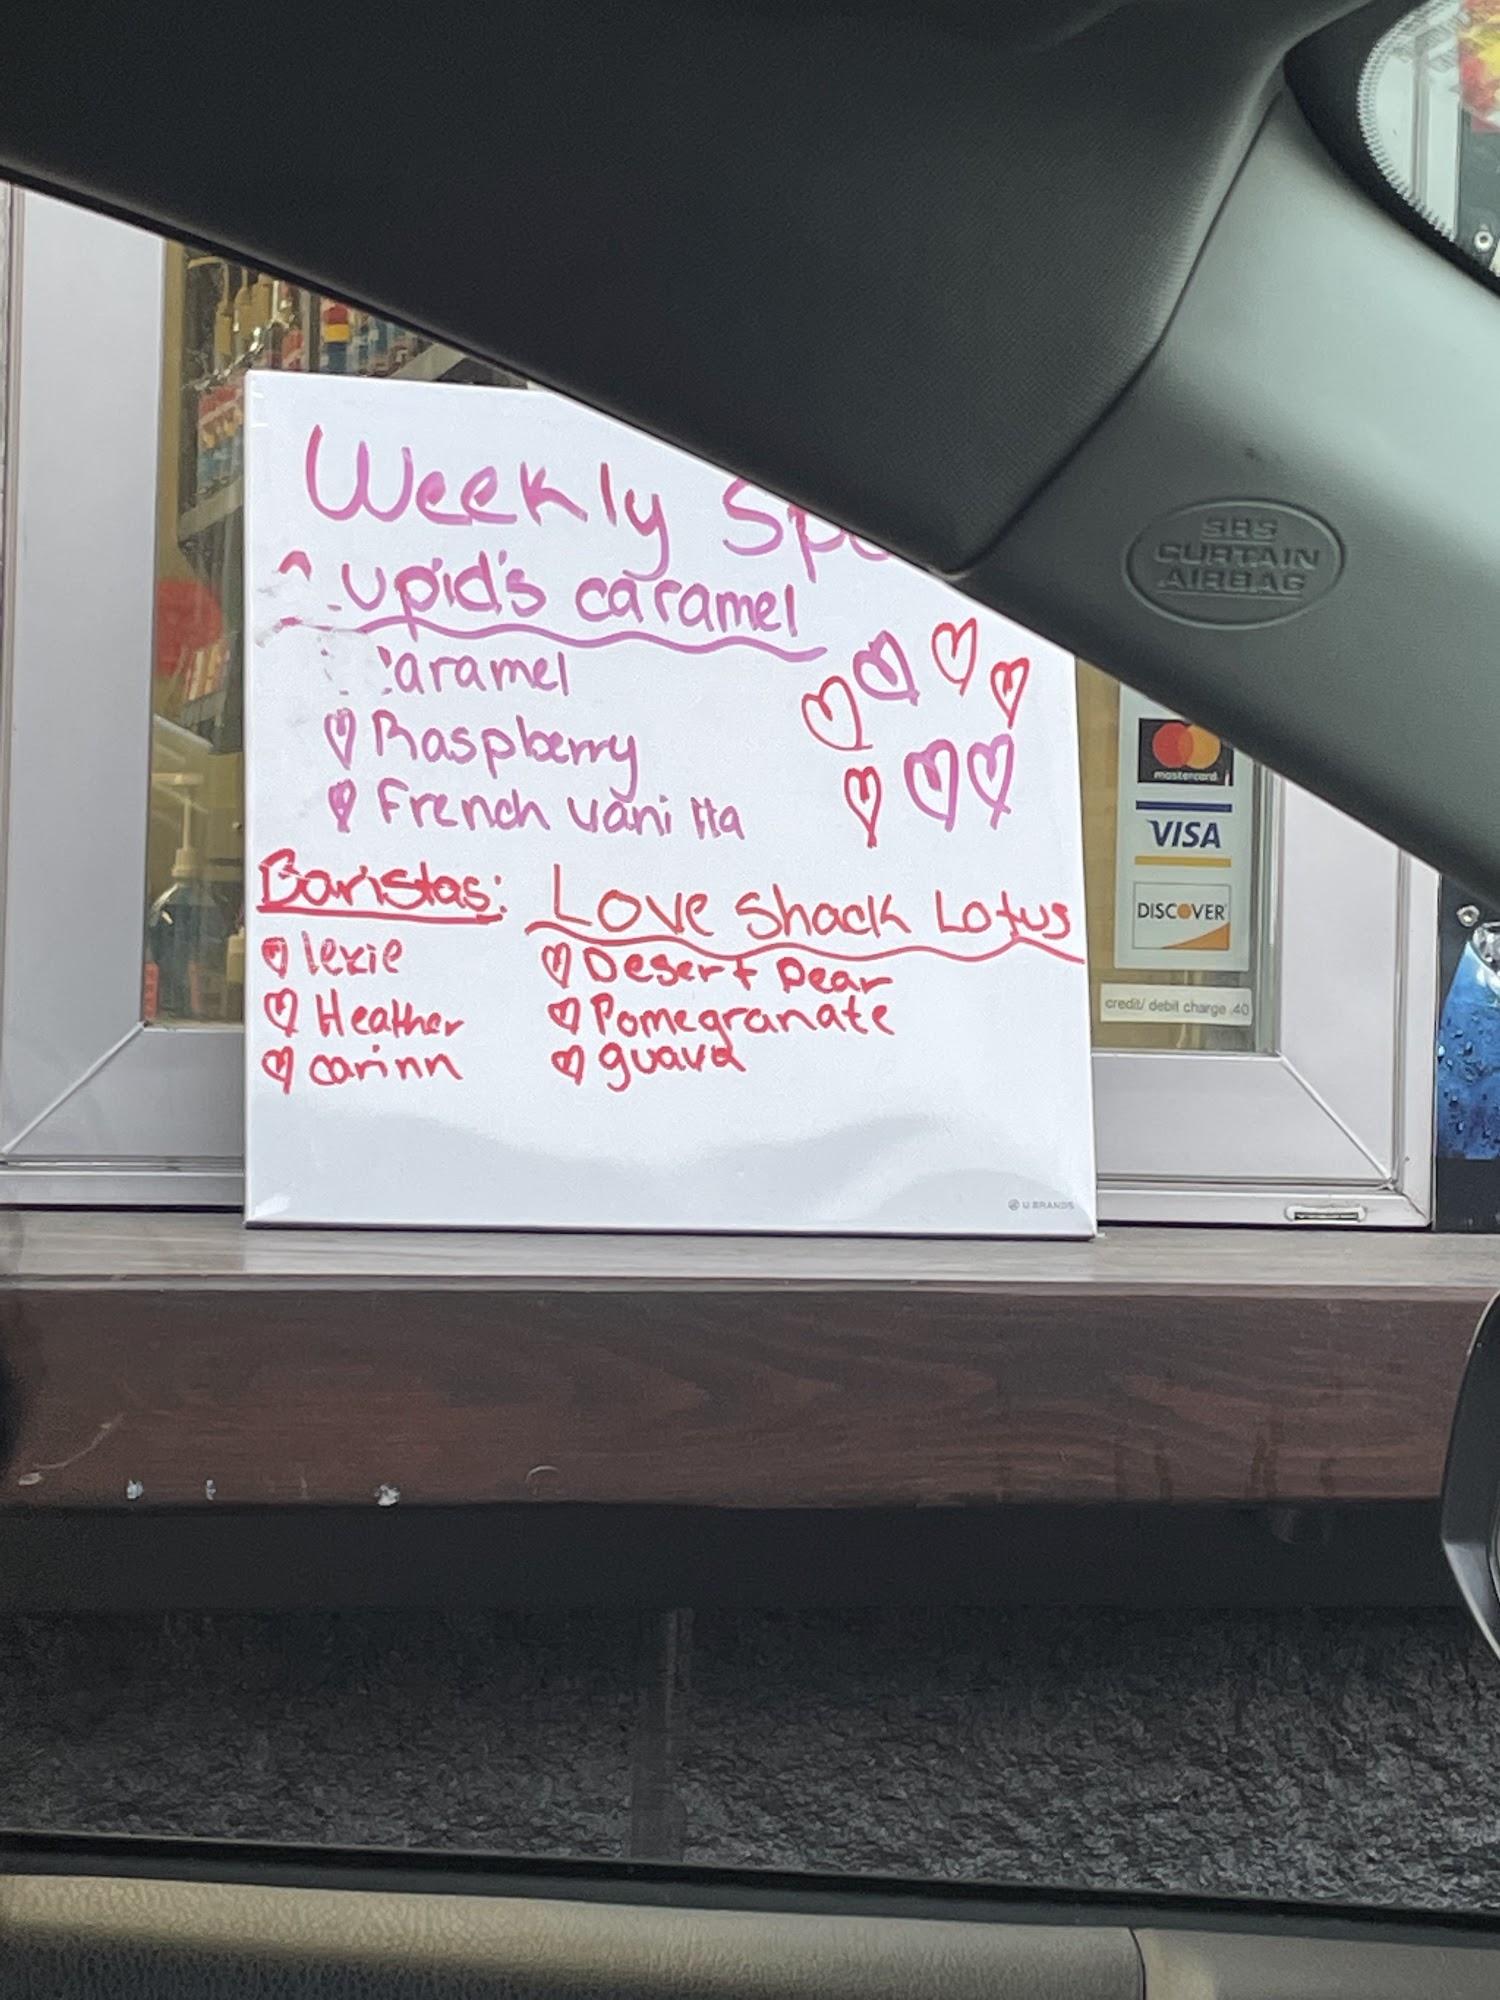 Weekly Spe
upid's caramel
aramel
Raspberry
French vanilla
Baristas:
lexie
Heather
carinn
Love Shack Lotus
Desert Pear
Pomegranate
guava
U BRANDS
SRS
CURTAIN
AIRBAG
mastercard
VISA
DISCOVER
credit/ debit charge .40